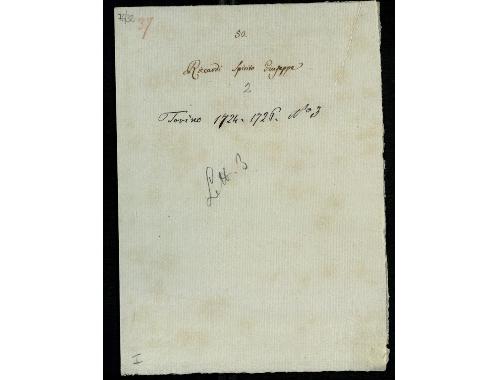 37
50.
Riccardi Spirito Giuseppe
2
Torino 1724. 1726. No 3
Lett. 3
I